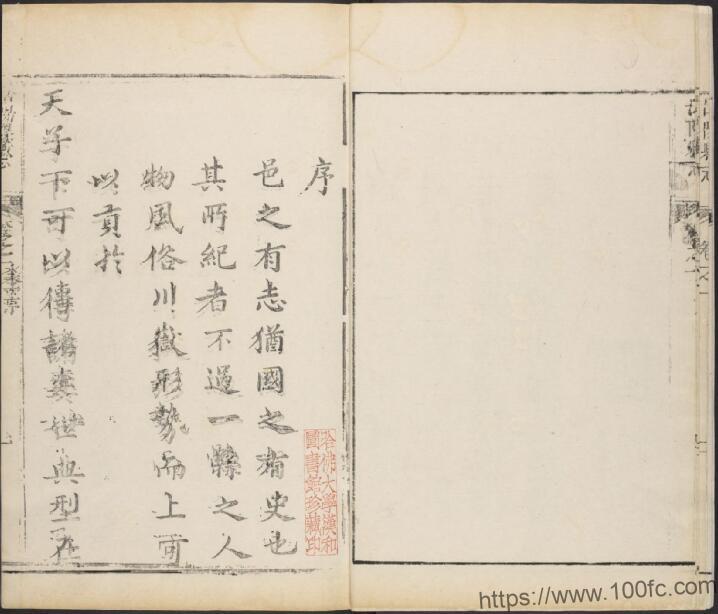 序
邑之有志猶國之有史也
其所紀者不過一縣之人
物風俗川嶽形勢而上可
以貢於
天子下可以傳諸奕世典型在
哈佛大學漢和
圖書館珍藏印
https://www.100fc.com